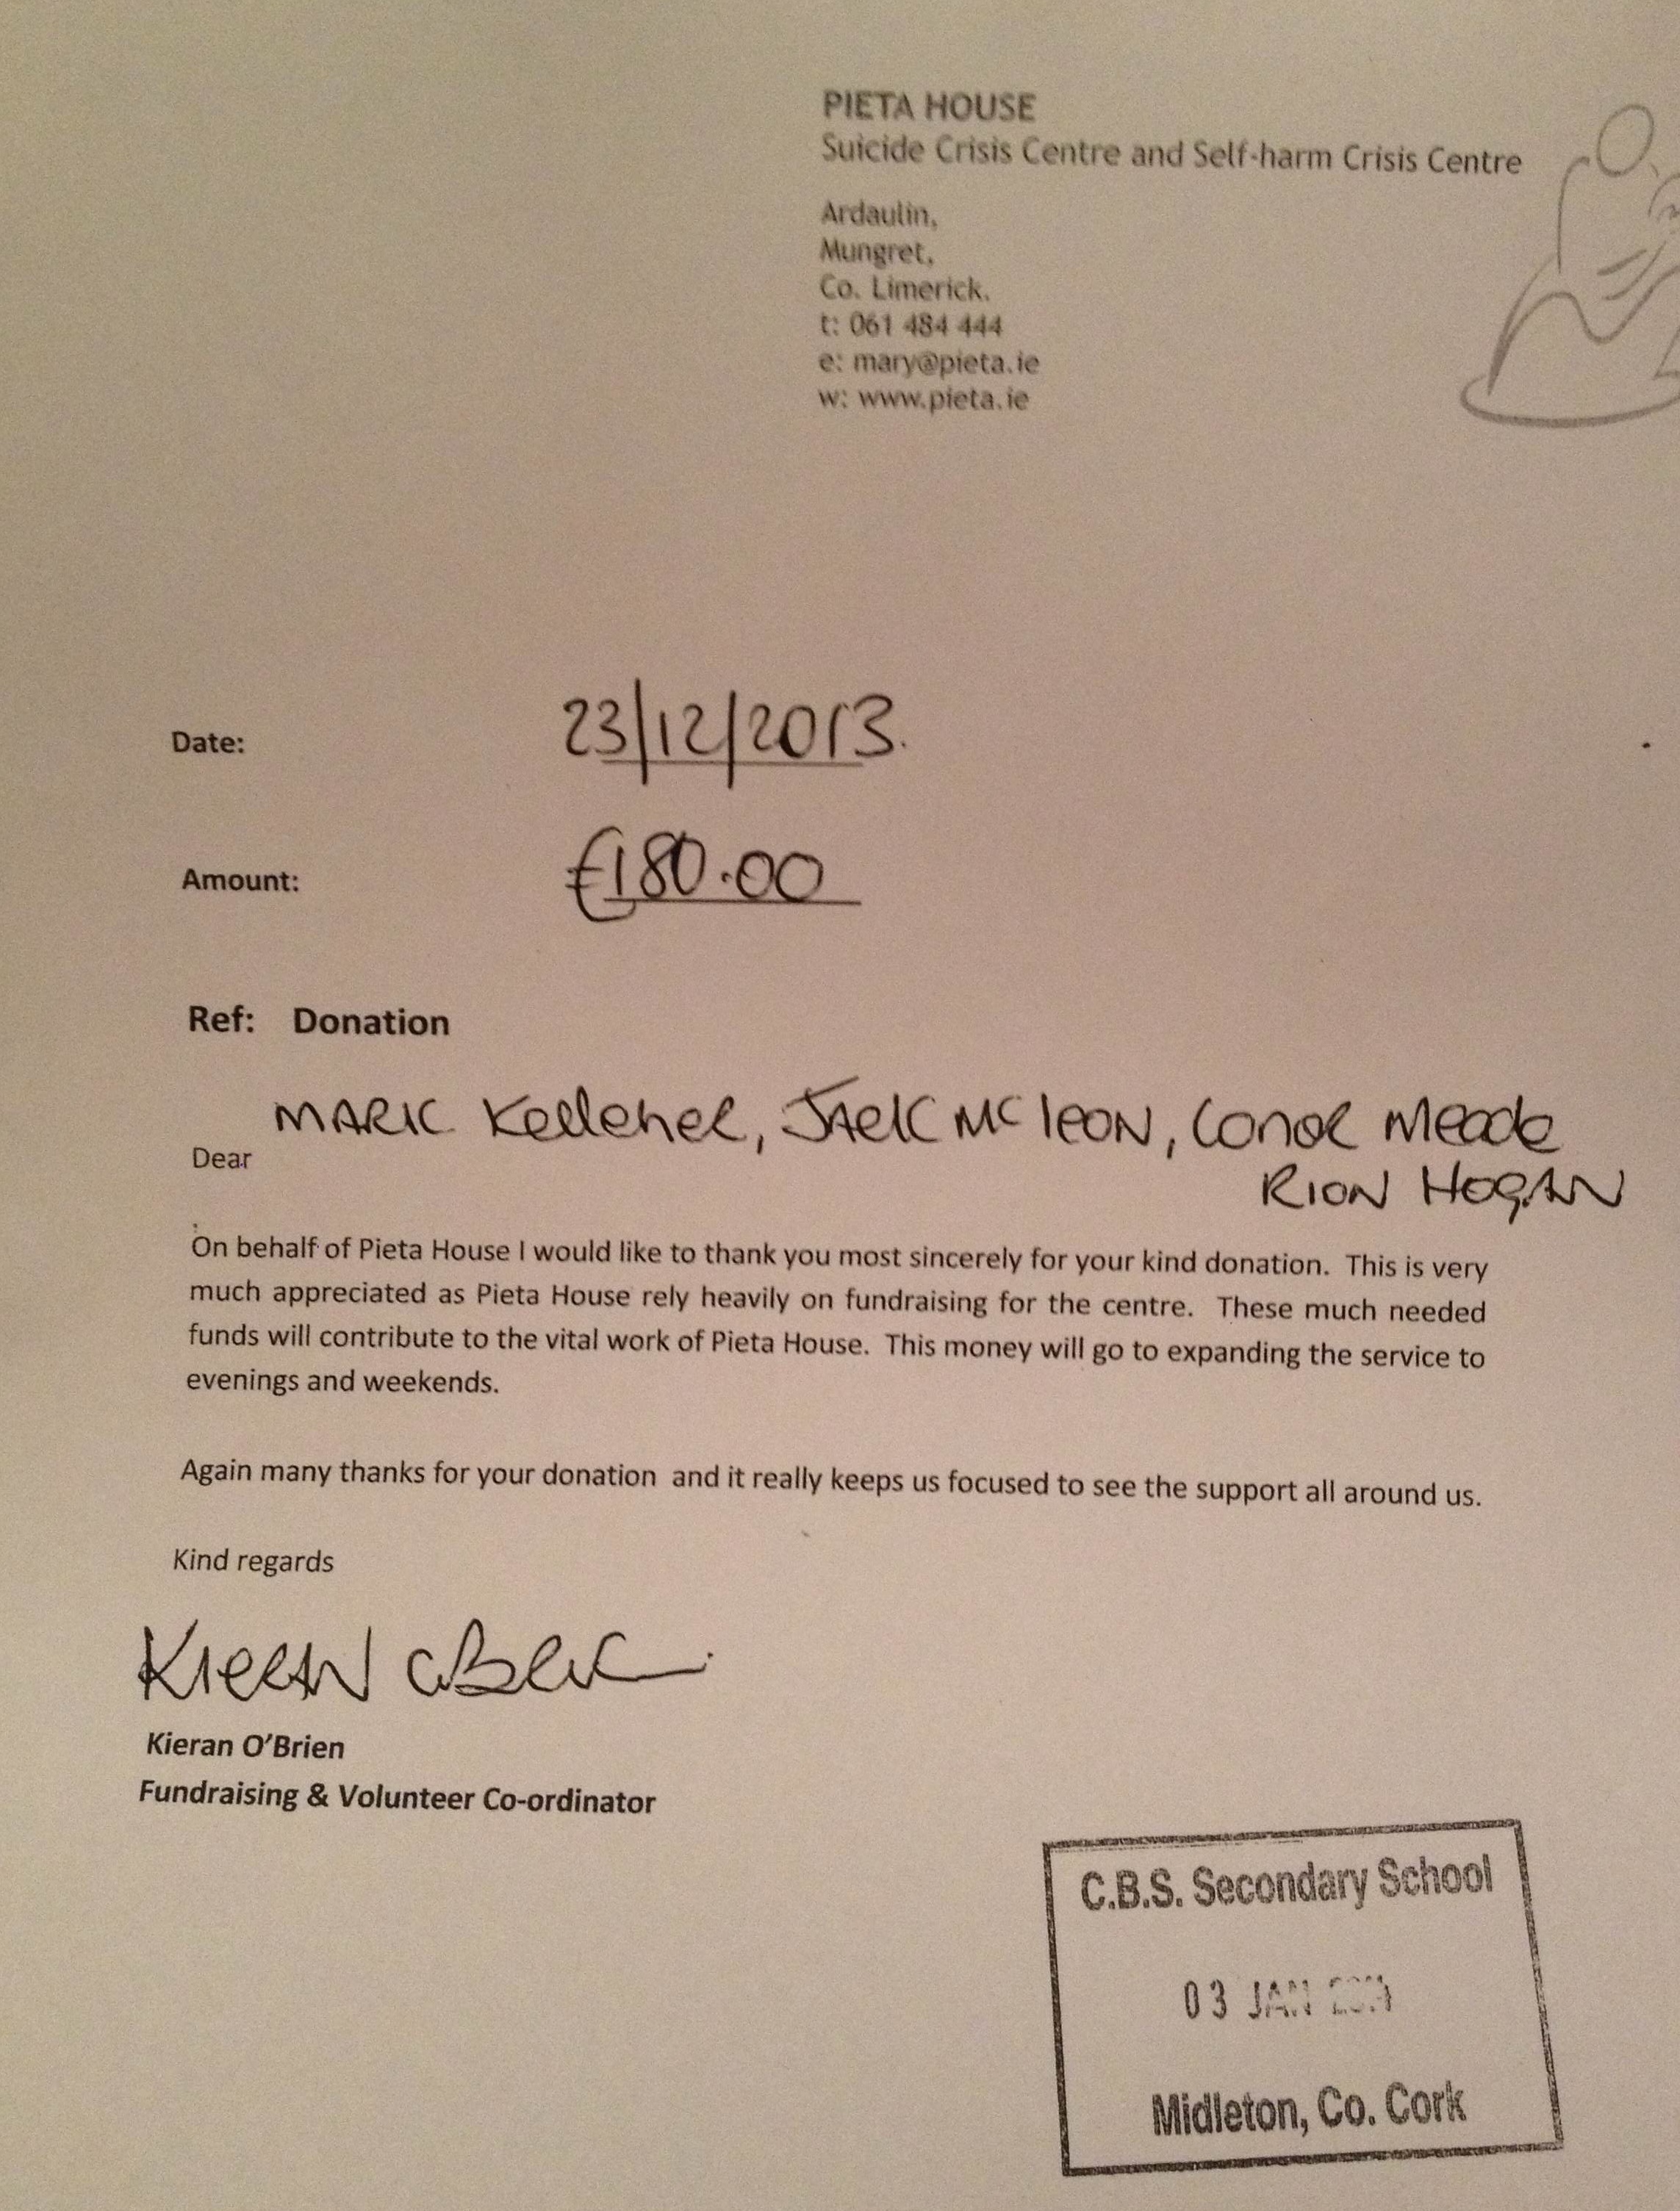 PIETA HOUSE
Suicide Crisis Centre and Self-harm Crisis Centre
Ardaulin,
Mungret,
Co. Limerick.
t: 061 484 444
e: mary@pieta.ie
w: www.pieta.ie
Date: 23/12/2013.
Amount: €180.00
Ref: Donation
Dear MARK Kelleher, JACK Mc leON, Conor Meade
RION HOGAN
On behalf of Pieta House I would like to thank you most sincerely for your kind donation. This is very
much appreciated as Pieta House rely heavily on fundraising for the centre. These much needed
funds will contribute to the vital work of Pieta House. This money will go to expanding the service to
evenings and weekends.
Again many thanks for your donation and it really keeps us focused to see the support all around us.
Kind regards
Kieran O'Brien
Kieran O'Brien
Fundraising & Volunteer Co-ordinator
C.B.S. Secondary School
03 JAN
Midleton, Co. Cork